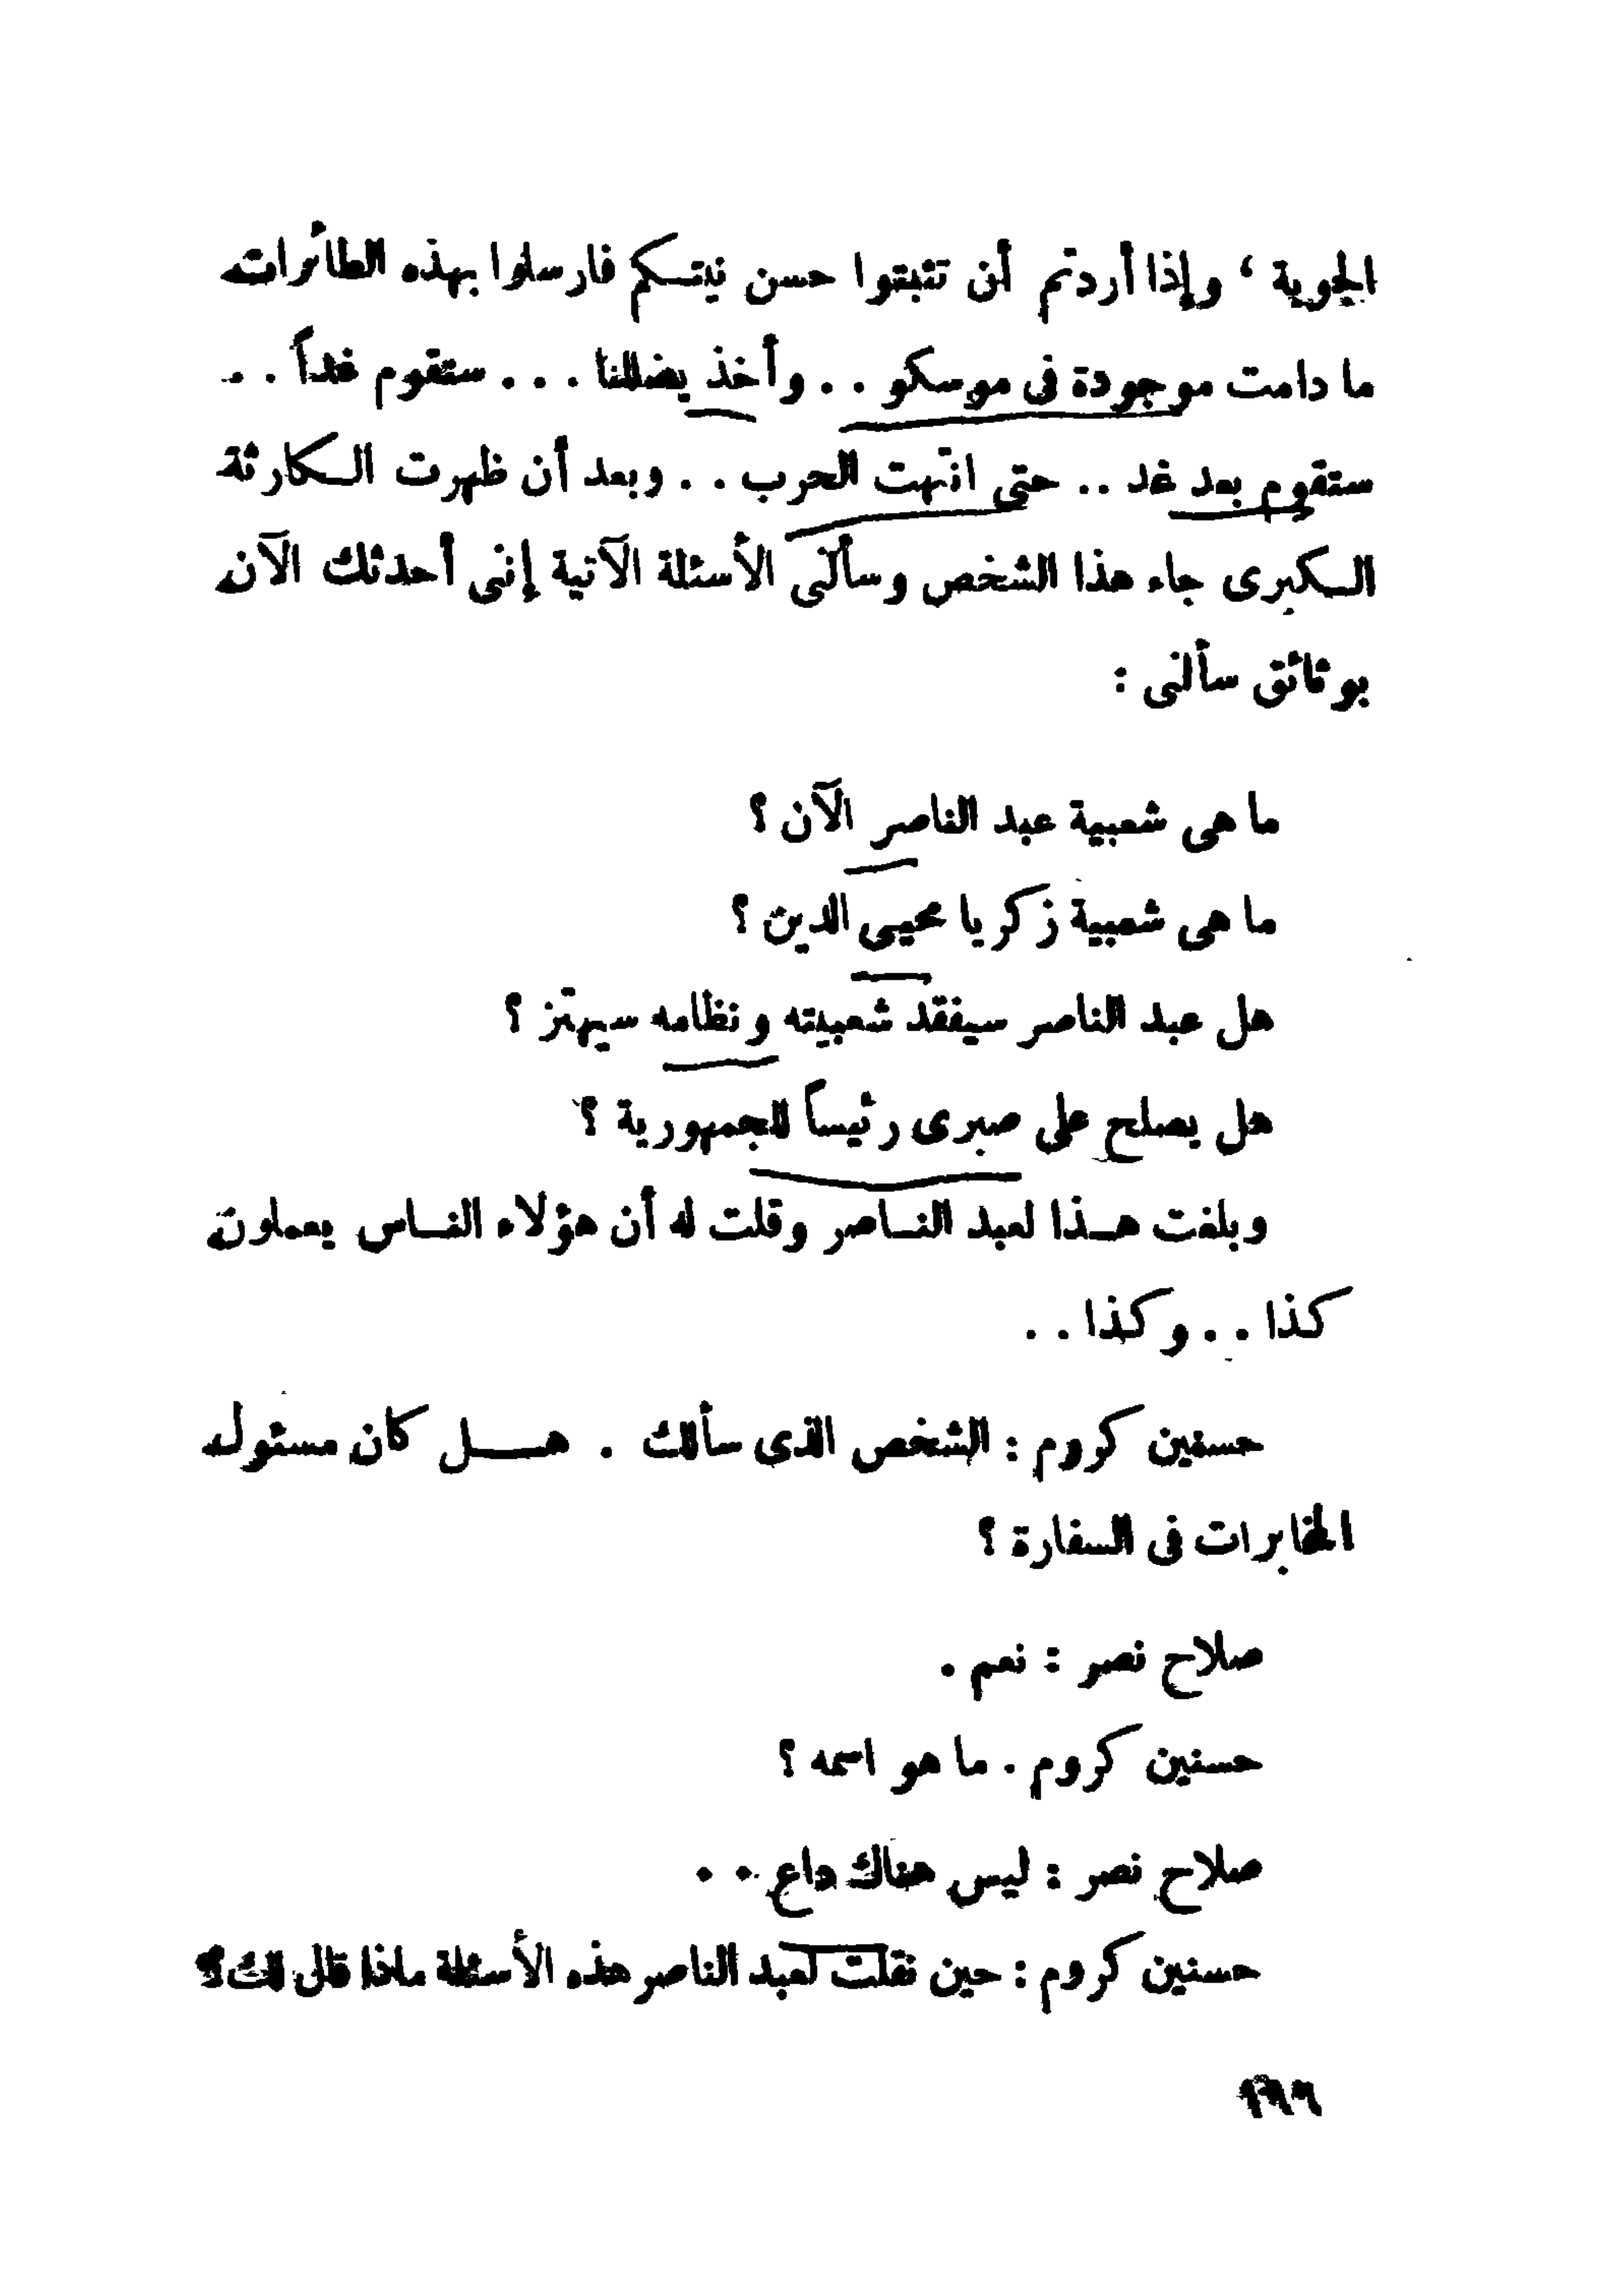 الجوية ، وإذا أردتم أن تثبتوا حسن نيتكم فارسلوا بهذه الطائرات
ما دامت موجودة فى موسكو . . وأخذ يضللنا . . . ستقوم غداً . .
ستقوم بعد غد .. حتى انتهت الحرب . . وبعد أن ظهرت الكارثة
الكبرى جاء هذا الشخص وسألنى الأسئلة الآتية إننى أحدثك الآن
بوثائق سألنى :
ما هى شعبية عبد الناصر الآن ؟
ما هى شعبية زكريا محيى الدين ؟
هل عبد الناصر سيفقد شعبيته ونظامه سيهتز ؟
هل يصلح على صبرى رئيساً للجمهورية ؟
وبلغت هذا لعبد الناصر وقلت له أن هؤلاء الناس يعملون
كذا . . وكذا . .
حسنين كروم : الشخص الذى سألك . هل كان مسئول
المخابرات فى السفارة ؟
صلاح نصر : نعم .
حسنين كروم . ما هو اسمه ؟
صلاح نصر : ليس هناك داع . .
حسنين كروم : حين نقلت لعبد الناصر هذه الأسئلة ماذا قال لك؟